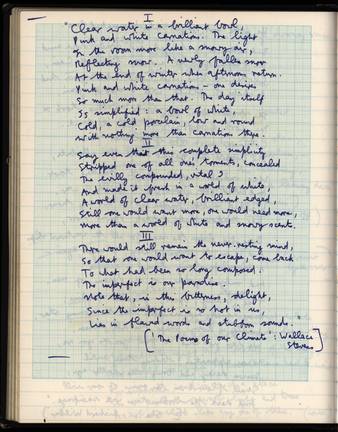 I
"Clear water in a brilliant bowl,
Pink and white carnations. The light
In the room more like a snowy air,
Reflecting snow. A newly fallen snow
At the end of winter when afternoons return.
Pink and white carnations - one desires
So much more than that. The day itself
Is simplified : a bowl of white,
Cold, a cold porcelain, low and round
With nothing more than carnations there.
II
Say even that this complete simplicity
Stripped one of all one's torments, concealed
The evilly compounded, vital I
And made it fresh in a world of white,
A world of clear water, brilliant edged,
Still one would want more, one would need more,
More than a world of white and snowy scents.
III
There would still remain the never-resting mind,
So that one would want to escape, come back
To what had been so long composed.
The imperfect is our paradise.
Note that, in this bitterness, delight,
Since the imperfect is so hot in us,
Lies in flawed words and stubborn sounds."
['The Poems of our Climate' : Wallace
Stevens]